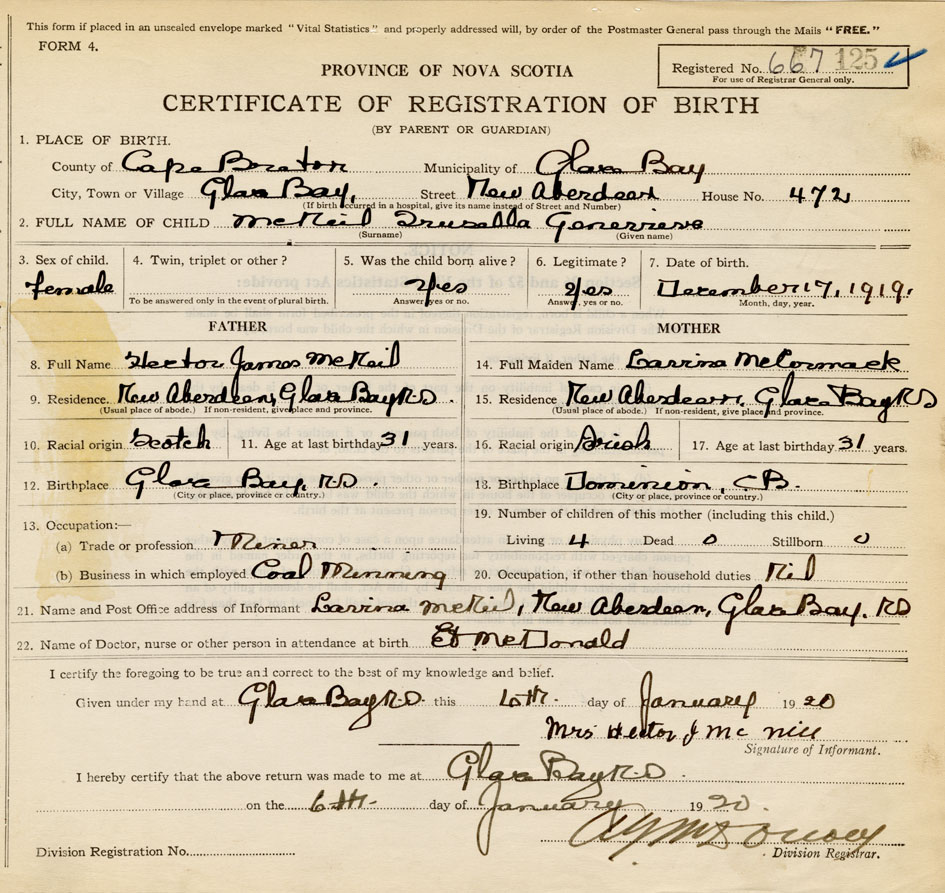 This form if placed in an unsealed envelope marked "Vital Statistics" and properly addressed will, by order of the Postmaster General pass through the Mails "FREE."
FORM 4.
Registered No. 667 125
For use of Registrar General only.
PROVINCE OF NOVA SCOTIA
CERTIFICATE OF REGISTRATION OF BIRTH
(BY PARENT OR GUARDIAN)
1. PLACE OF BIRTH.
County of Cape Breton Municipality of Glace Bay
City, Town or Village Glace Bay, Street New Aberdeen House No. 472
(If birth occurred in a hospital, give its name instead of Street and Number)
2. FULL NAME OF CHILD McNeil Genevieve
(Surname) (Given name)
3. Sex of child. 4. Twin, triplet or other? 5. Was the child born alive? 6. Legitimate? 7. Date of birth.
female Yes Yes December 17, 1919.
To be answered only in the event of plural birth. Answer, yes or no. Answer, yes or no. Month, day, year.
FATHER MOTHER
8. Full Name Hector James McNeil 14. Full Maiden Name Lavina McCormack
9. Residence. New Aberdeen, Glace Bay R.D. 15. Residence New Aberdeen, Glace Bay RD
(Usual place of abode.) If non-resident, give place and province. (Usual place of abode.) If non-resident, give place and province.
10. Racial origin Scotch 11. Age at last birthday 31 years. 16. Racial origin Irish 17. Age at last birthday 31 years.
12. Birthplace Glace Bay, R.D. 18. Birthplace Dominion, CB.
(City or place, province or country.) (City or place, province or country.)
13. Occupation:— 19. Number of children of this mother (including this child.)
(a) Trade or profession Miner Living 4 Dead 0 Stillborn 0
(b) Business in which employed Coal Minning 20. Occupation, if other than household duties Nil
21. Name and Post Office address of Informant Lavina McNeil, New Aberdeen, Glace Bay. RD
22. Name of Doctor, nurse or other person in attendance at birth McDonald
I certify the foregoing to be true and correct to the best of my knowledge and belief.
Given under my hand at Glace Bay R.D. this 6th. day of January 1920
Mrs Hector J Mc Nill
Signature of Informant.
I hereby certify that the above return was made to me at Glace Bay R.D.
on the 6th. day of January 1920.
Division Registration No.
Division Registrar.